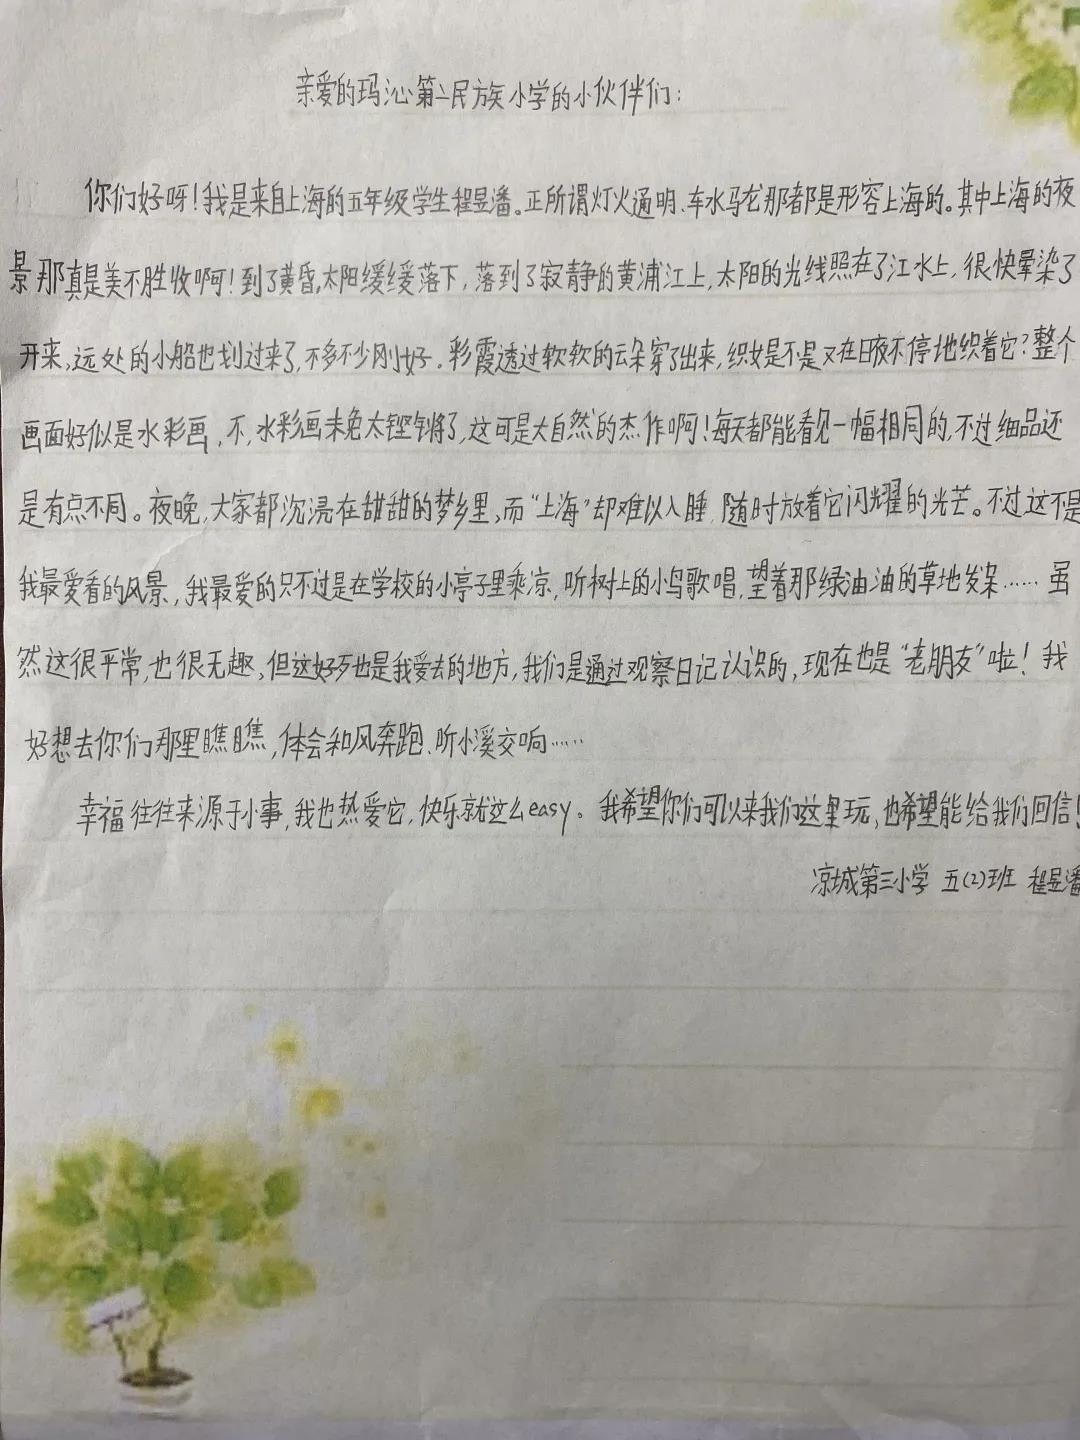 亲爱的玛沁第二民族小学的小伙伴们：
你们好呀！我是来自上海的五年级学生程昱潘。正所谓灯火通明、车水马龙那都是形容上海的。其中上海的夜
景那真是美不胜收啊！到了黄昏，太阳缓缓落下，落到了寂静的黄浦江上，太阳的光线照在了江水上，很快晕染了
开来，远处的小船也划过来了，不多不少刚好。彩霞透过软软的云朵穿了出来，织女是不是又在日夜不停地织着它？整个
画面好似是水彩画，不，水彩画未免太铿锵了，这可是大自然的杰作啊！每天都能看见一幅相同的，不过细品还
是有点不同。夜晚，大家都沉浸在甜甜的梦乡里，而“上海”却难以入睡，随时放着它闪耀的光芒。不过这不是
我最爱看的风景，我最爱的只不过是在学校的小亭子里乘凉，听树上的小鸟歌唱，望着那绿油油的草地发呆……虽
然这很平常，也很无趣，但这好歹也是我爱去的地方，我们是通过观察日记认识的，现在也是“老朋友”啦！我
好想去你们那里瞧瞧，体会和风奔跑、听小溪交响……
幸福往往来源于小事，我也热爱它，快乐就这么easy。我希望你们可以来我们这里玩，也希望能给我们回信！
凉城第三小学 五(2)班 程昱潘